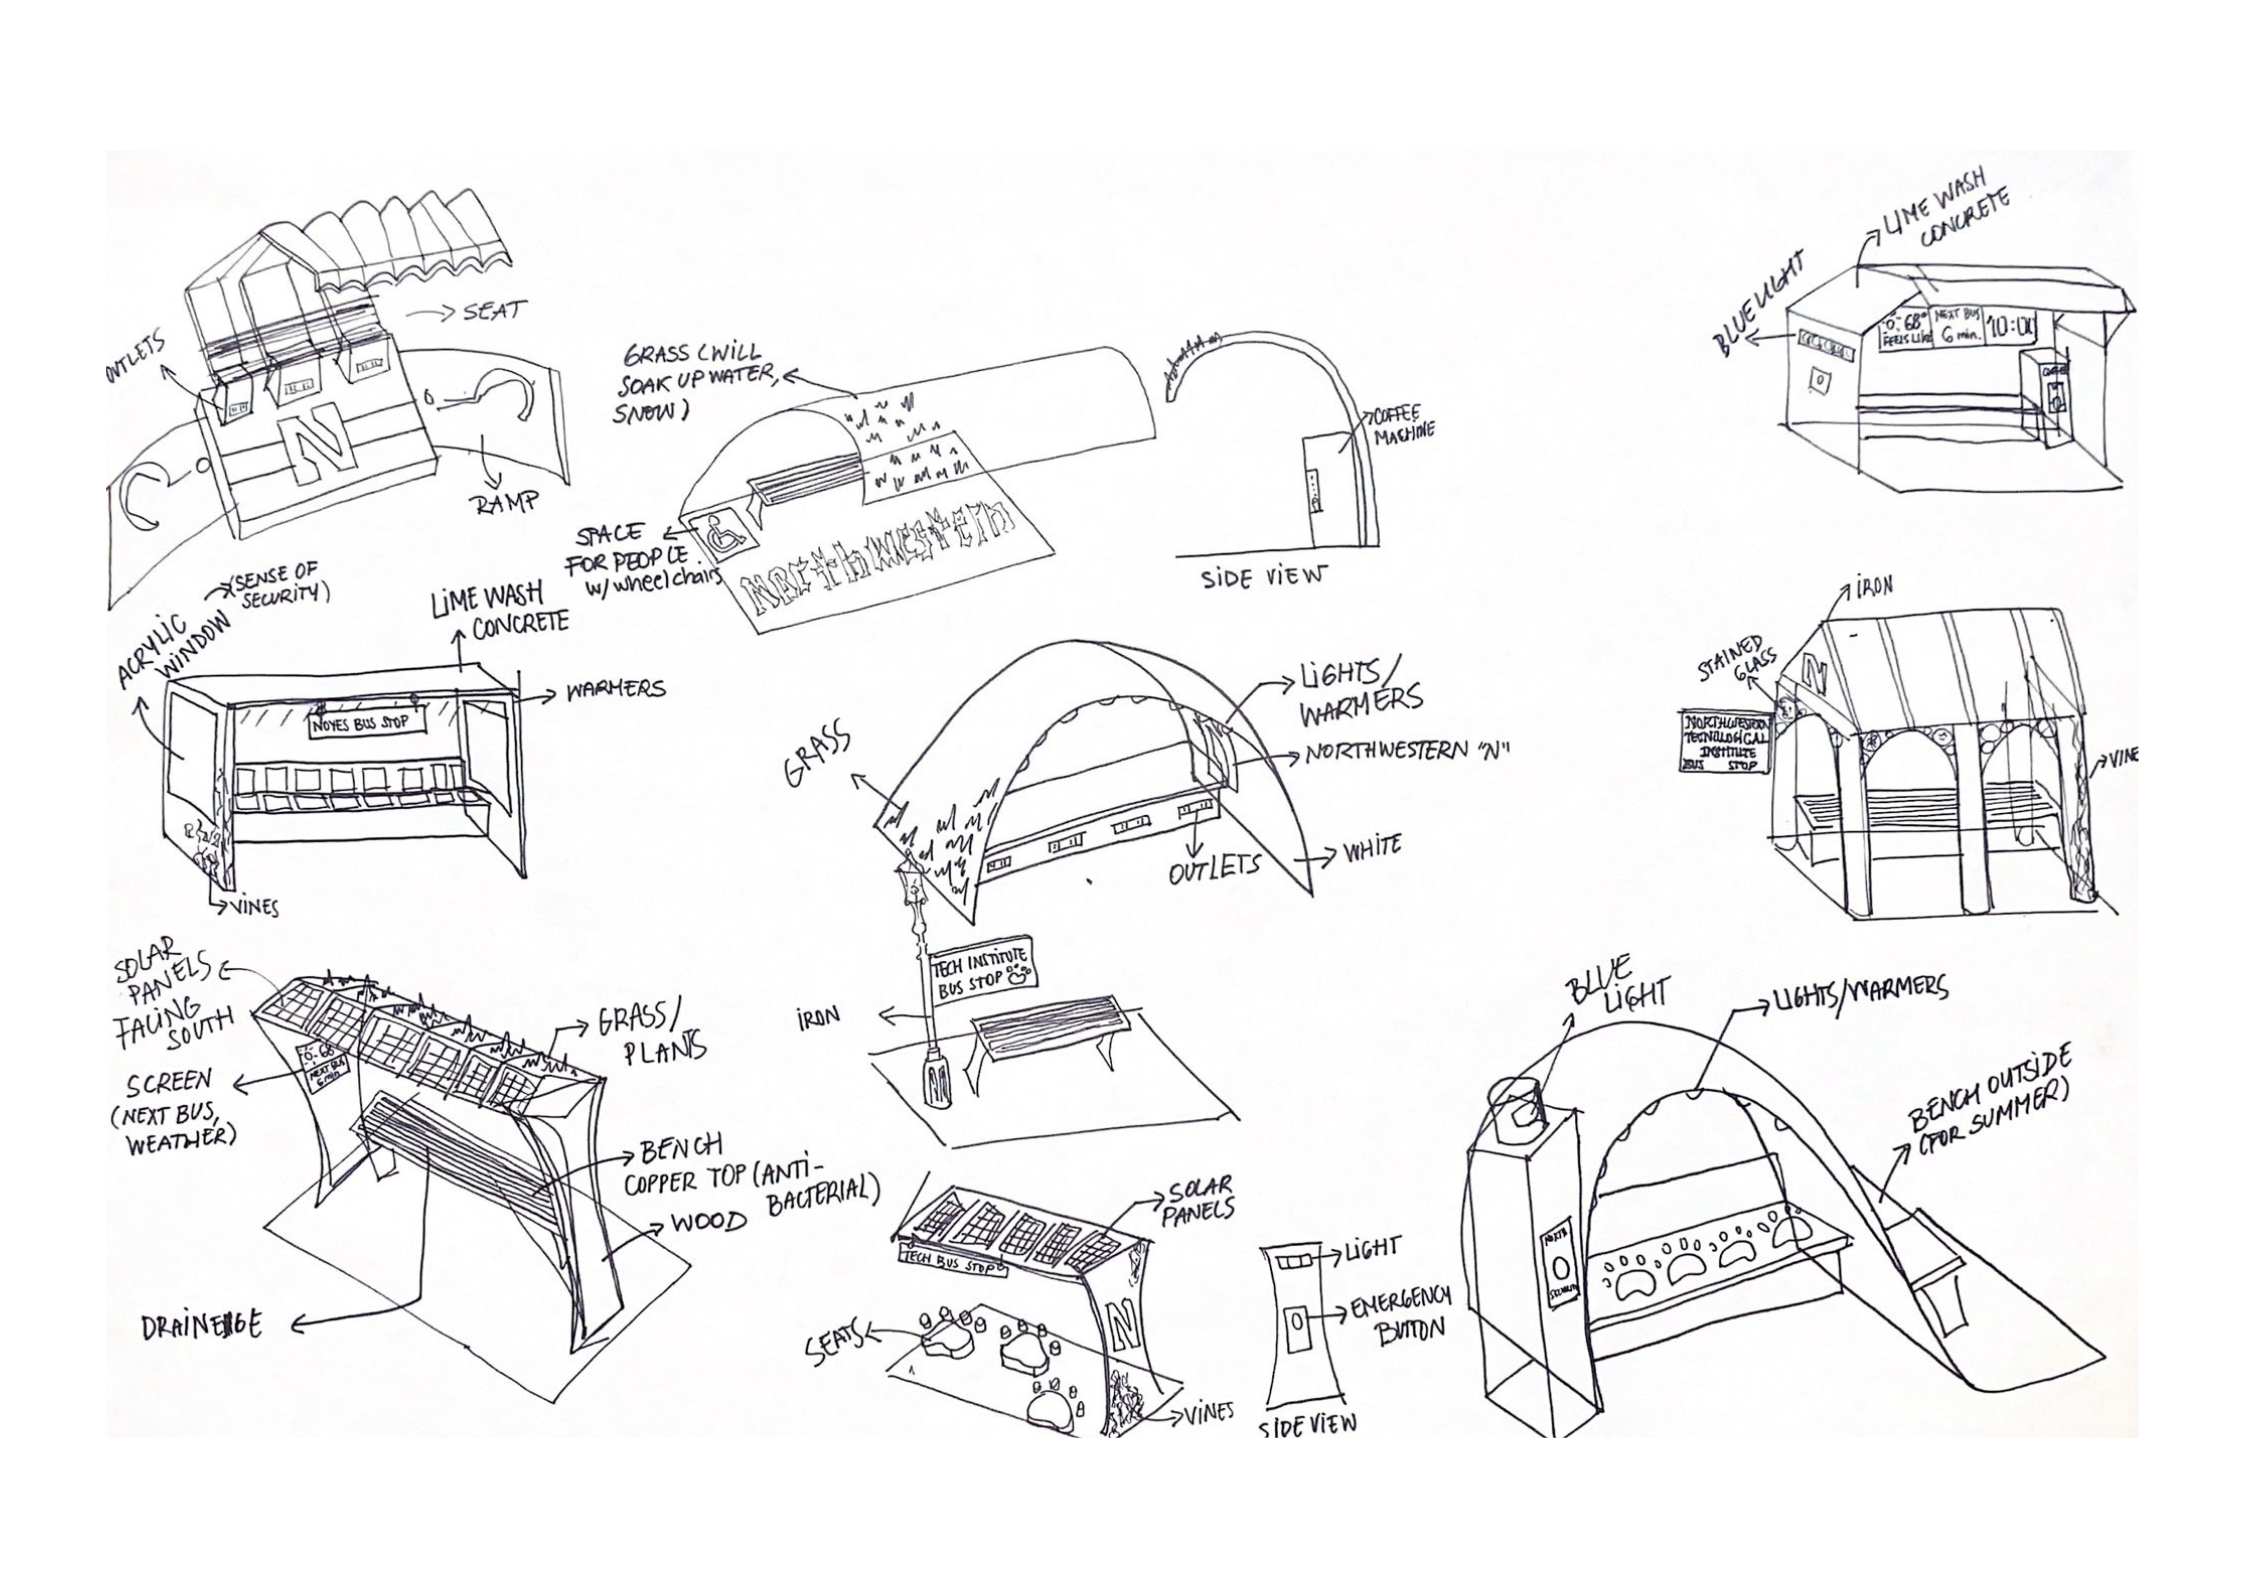 SEAT
OUTLETS
N
RAMP
GRASS (WILL
SOAK UP WATER,
SNOW)
SPACE
FOR PEOPLE
w/wheelchairs
Northwestern
COFFEE
MACHINE
SIDE VIEW
LIME WASH
CONCRETE
BLUE LIGHT
68°
FEELS LIKE
NEXT BUS
6 min.
10:00
COFFEE
(SENSE OF
SECURITY)
ACRYLIC
WINDOW
LIME WASH
CONCRETE
WARMERS
NOYES BUS STOP
VINES
LIGHTS/
WARMERS
GRASS
N
NORTHWESTERN "N"
OUTLETS
WHITE
IRON
STAINED
GLASS
N
NORTHWESTERN
TECNOLOGICAL
INSTITUTE
BUS STOP
VINE
SOLAR
PANELS
FACING
SOUTH
GRASS/
PLANTS
SCREEN
(NEXT BUS,
WEATHER)
68
NEXT BUS
6 min
BENCH
COPPER TOP (ANTI-
BACTERIAL)
WOOD
DRAINEGE
TECH INSTITUTE
BUS STOP
IRON
SOLAR
PANELS
TECH BUS STOP
SEATS
N
VINES
LIGHT
EMERGENCY
BUTTON
SIDE VIEW
BLUE
LIGHT
LIGHTS/WARMERS
BENCH OUTSIDE
(FOR SUMMER)
SECURITY